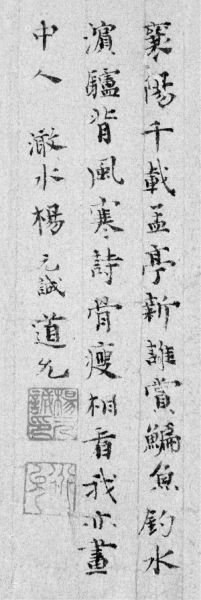 襄陽千載孟亭新誰賞鯿魚釣水
濱驢背風寒詩骨瘦相看我亦畫
中人　澉水楊元誠道允
楊元
誠印